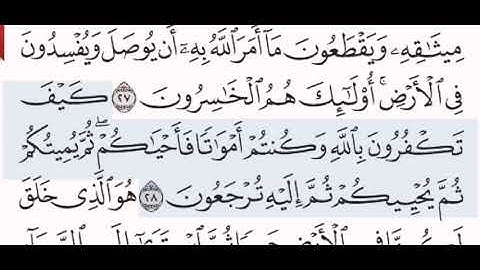 مِيثَٰقِهِۦ وَيَقۡطَعُونَ مَآ أَمَرَ ٱللَّهُ بِهِۦٓ أَن يُوصَلَ وَيُفۡسِدُونَ
فِي ٱلۡأَرۡضِۚ أُوْلَٰٓئِكَ هُمُ ٱلۡخَٰسِرُونَ ٢٧ كَيۡفَ
تَكۡفُرُونَ بِٱللَّهِ وَكُنتُمۡ أَمۡوَٰتٗا فَأَحۡيَٰكُمۡۖ ثُمَّ يُمِيتُكُمۡ
ثُمَّ يُحۡيِيكُمۡ ثُمَّ إِلَيۡهِ تُرۡجَعُونَ ٢٨ هُوَ ٱلَّذِي خَلَقَ